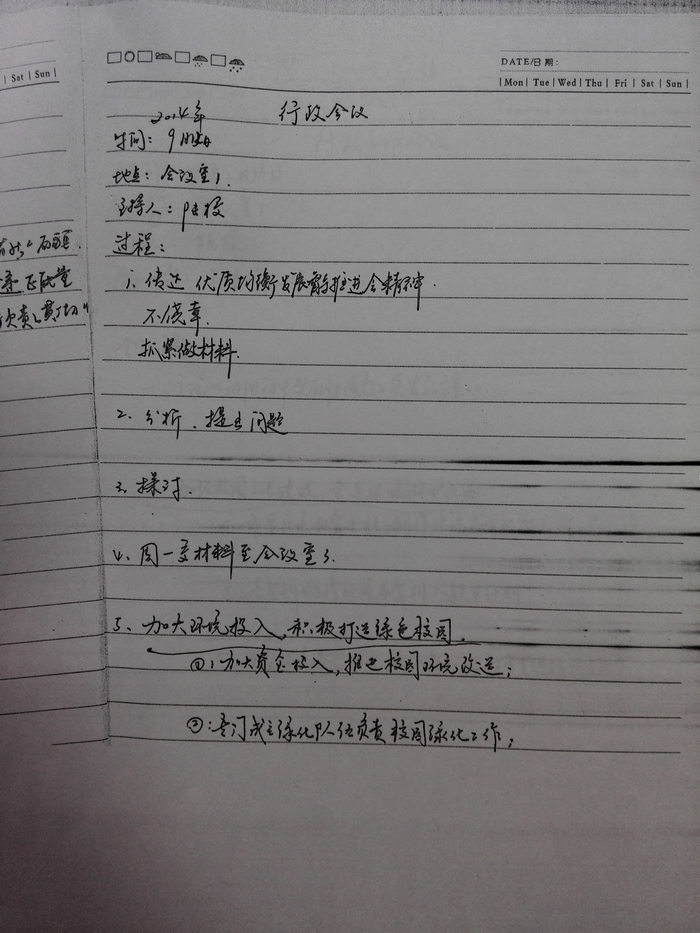 DATE/日期:
| Mon | Tue | Wed | Thu | Fri | Sat | Sun |
| Sat | Sun |
行政会议
2014年
时间: 9月
地点: 会议室1.
主持人: 校
过程:
1. 传达 优质均衡发展 推进会精神.
不侥幸.
抓紧做材料.
2. 分析. 提出问题
3. 探讨.
4. 周一 材料至会议室3.
5、加大环境投入, 积极打造绿色校园.
①: 加大资金投入, 推进校园环境改造;
②: 专门成立绿化队伍负责校园绿化工作;